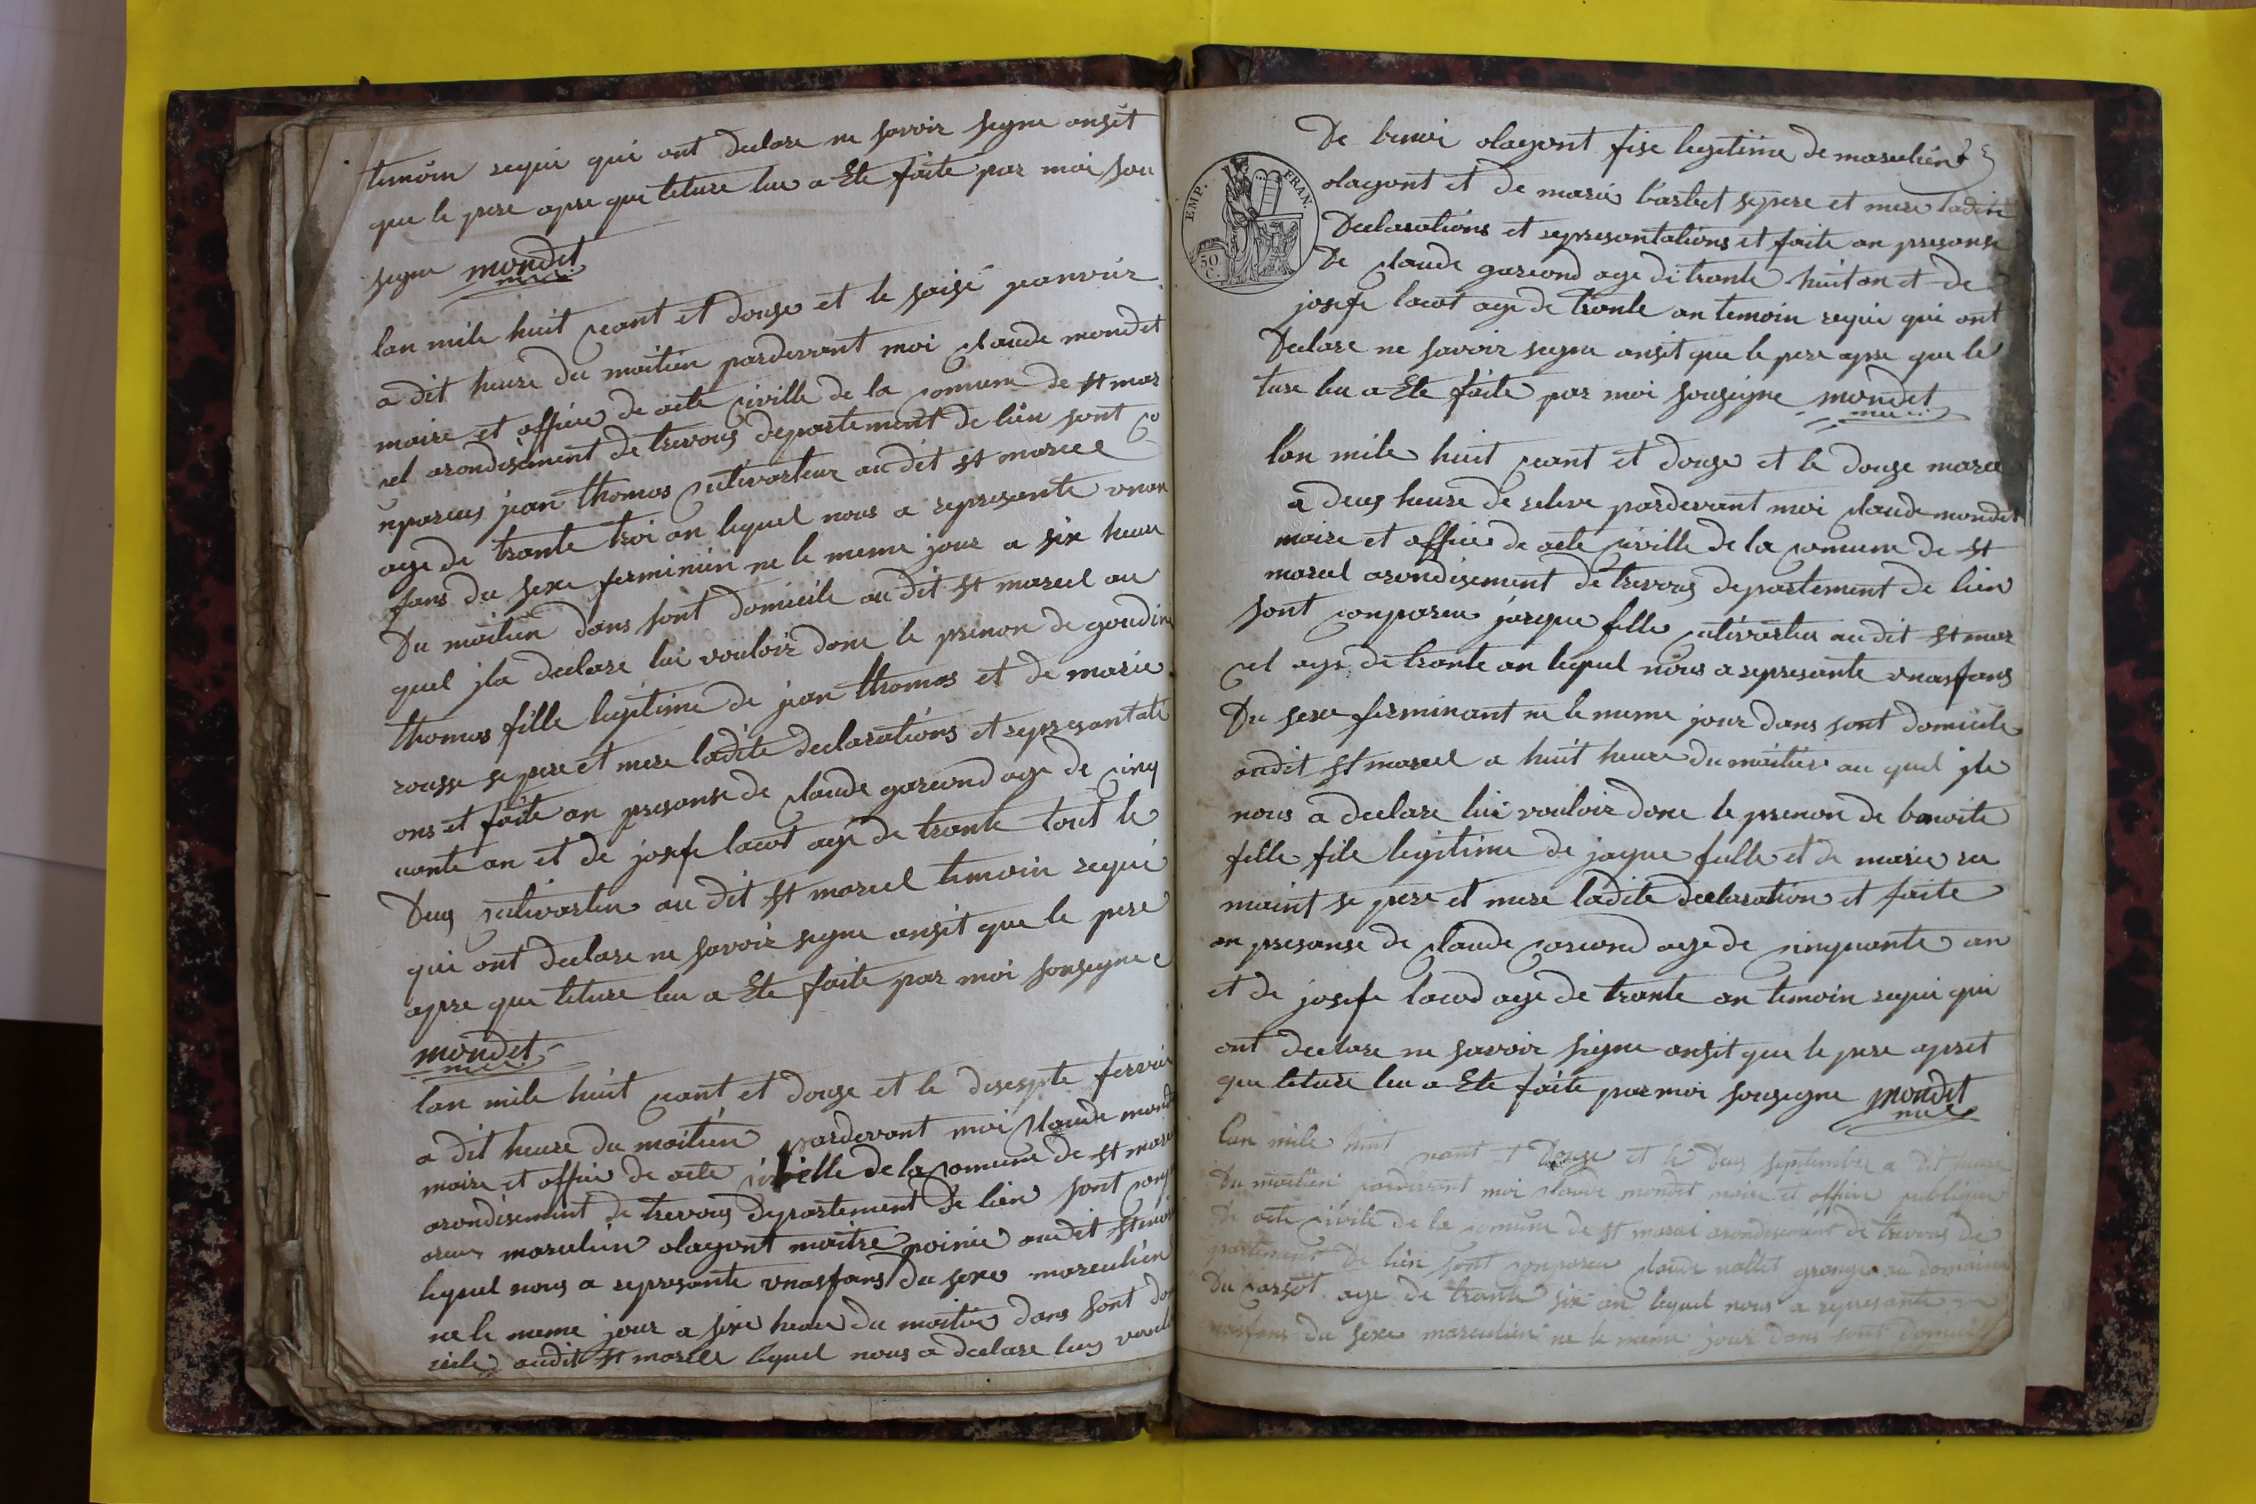 temoin requi qui ont declare ne savoir signe ansit
que le pere apre que leture lui a Ete faite par moi sou
signe mondet
lan mile huit cent et douze et le saisé janvier
a dit heure du maitien pardevant moi claude mondet
maire et officié de acte civille de la comune de st mar
cel arondisement de trevous departement de lién sont co
nparus jean thomas cultivarteur au dit st marcel
age de trante troi an lequel nous a represante unan
fans du sexe ferminien ne le meme jour a six heure
Du maitien dans sont domicile au dit st marcel au
quel jla declare lui vouloir done le prenon de goudine
thomas fille legitime de jean thomas et de marie
rousse se pere et mere ladite declarations et represantati
ons et faite an presanse de claude garcond age de cinq
uante an et de josefe lacot age de trante tout le
Deus cultivarteu au dit st marcel temoin requi
qui ont declare ne savoir signe ansit que le pere
apre que leture lui a Ete faite par moi sousigne
mondet
lan mile huit cant et douze et le disespte fervrié
a dit heure du maitién pardevant moi claude mond
maire et officié de acte civille de la comune de st marc
arondisement de trevous departement de lien sont conp
areus marculien olagont maitre poinié audit st mar
lequel nous a represante unasfans du sexe marculién
ne le meme jour a sixe heure du maitié dans sont do
cile audit st marcel lequel nous a declare luy voul
De benoi olagont fise legitime de marculién
olagont et de marie barbet se pere et mere ladite
Declarations et represantations et faite an presanse
De claude garcond age de trante huit an et de
EMP. FRAN.
50 C.
josefe lacot age de trante an temoin requi qui ont
Declare ne savoir signe ansit que le pere apre que le
ture lui a Ete faite par moi sousigne mondet
lan mile huit cant et douze et le douze marce
a deus heure de releve pardevant moi claude mondet
maire et officié de acte civille de la comune de st
marcel arondisement de trevous departement de lien
sont conpareu jacque felle cultivarteu au dit st mar
cel age de trante an lequel nous a represante unasfans
Du sexe ferminant ne le meme jour dans sont domicile
audit st marcel a huit heure du maitié au quel jla
nous a declare lui vouloir done le prenon de benoite
felle file legitime de jaque felle et de marie ra
maint se pere et mere ladite declaration et faite
an presanse de claude carcond age de cinquante an
et de josefe lacod age de trante an temoin requi qui
ont declare ne savoir signe ansit que le pere apret
que leture lui a Ete faite par moi sousigne mondet
Lan mile huit cant et Douze et le Deus septembre a Dit heure
Du maitien pardevant moi claude mondet maire et officié publique
De acte civile de la comune de st marcel arondisement de trevous de
partement De lien sont conpareu claude nallet grange au domaine
Du carsot age de trante six an lequel nous a represante un
nasfans du sexe marculien ne le meme jour dans sont domicile